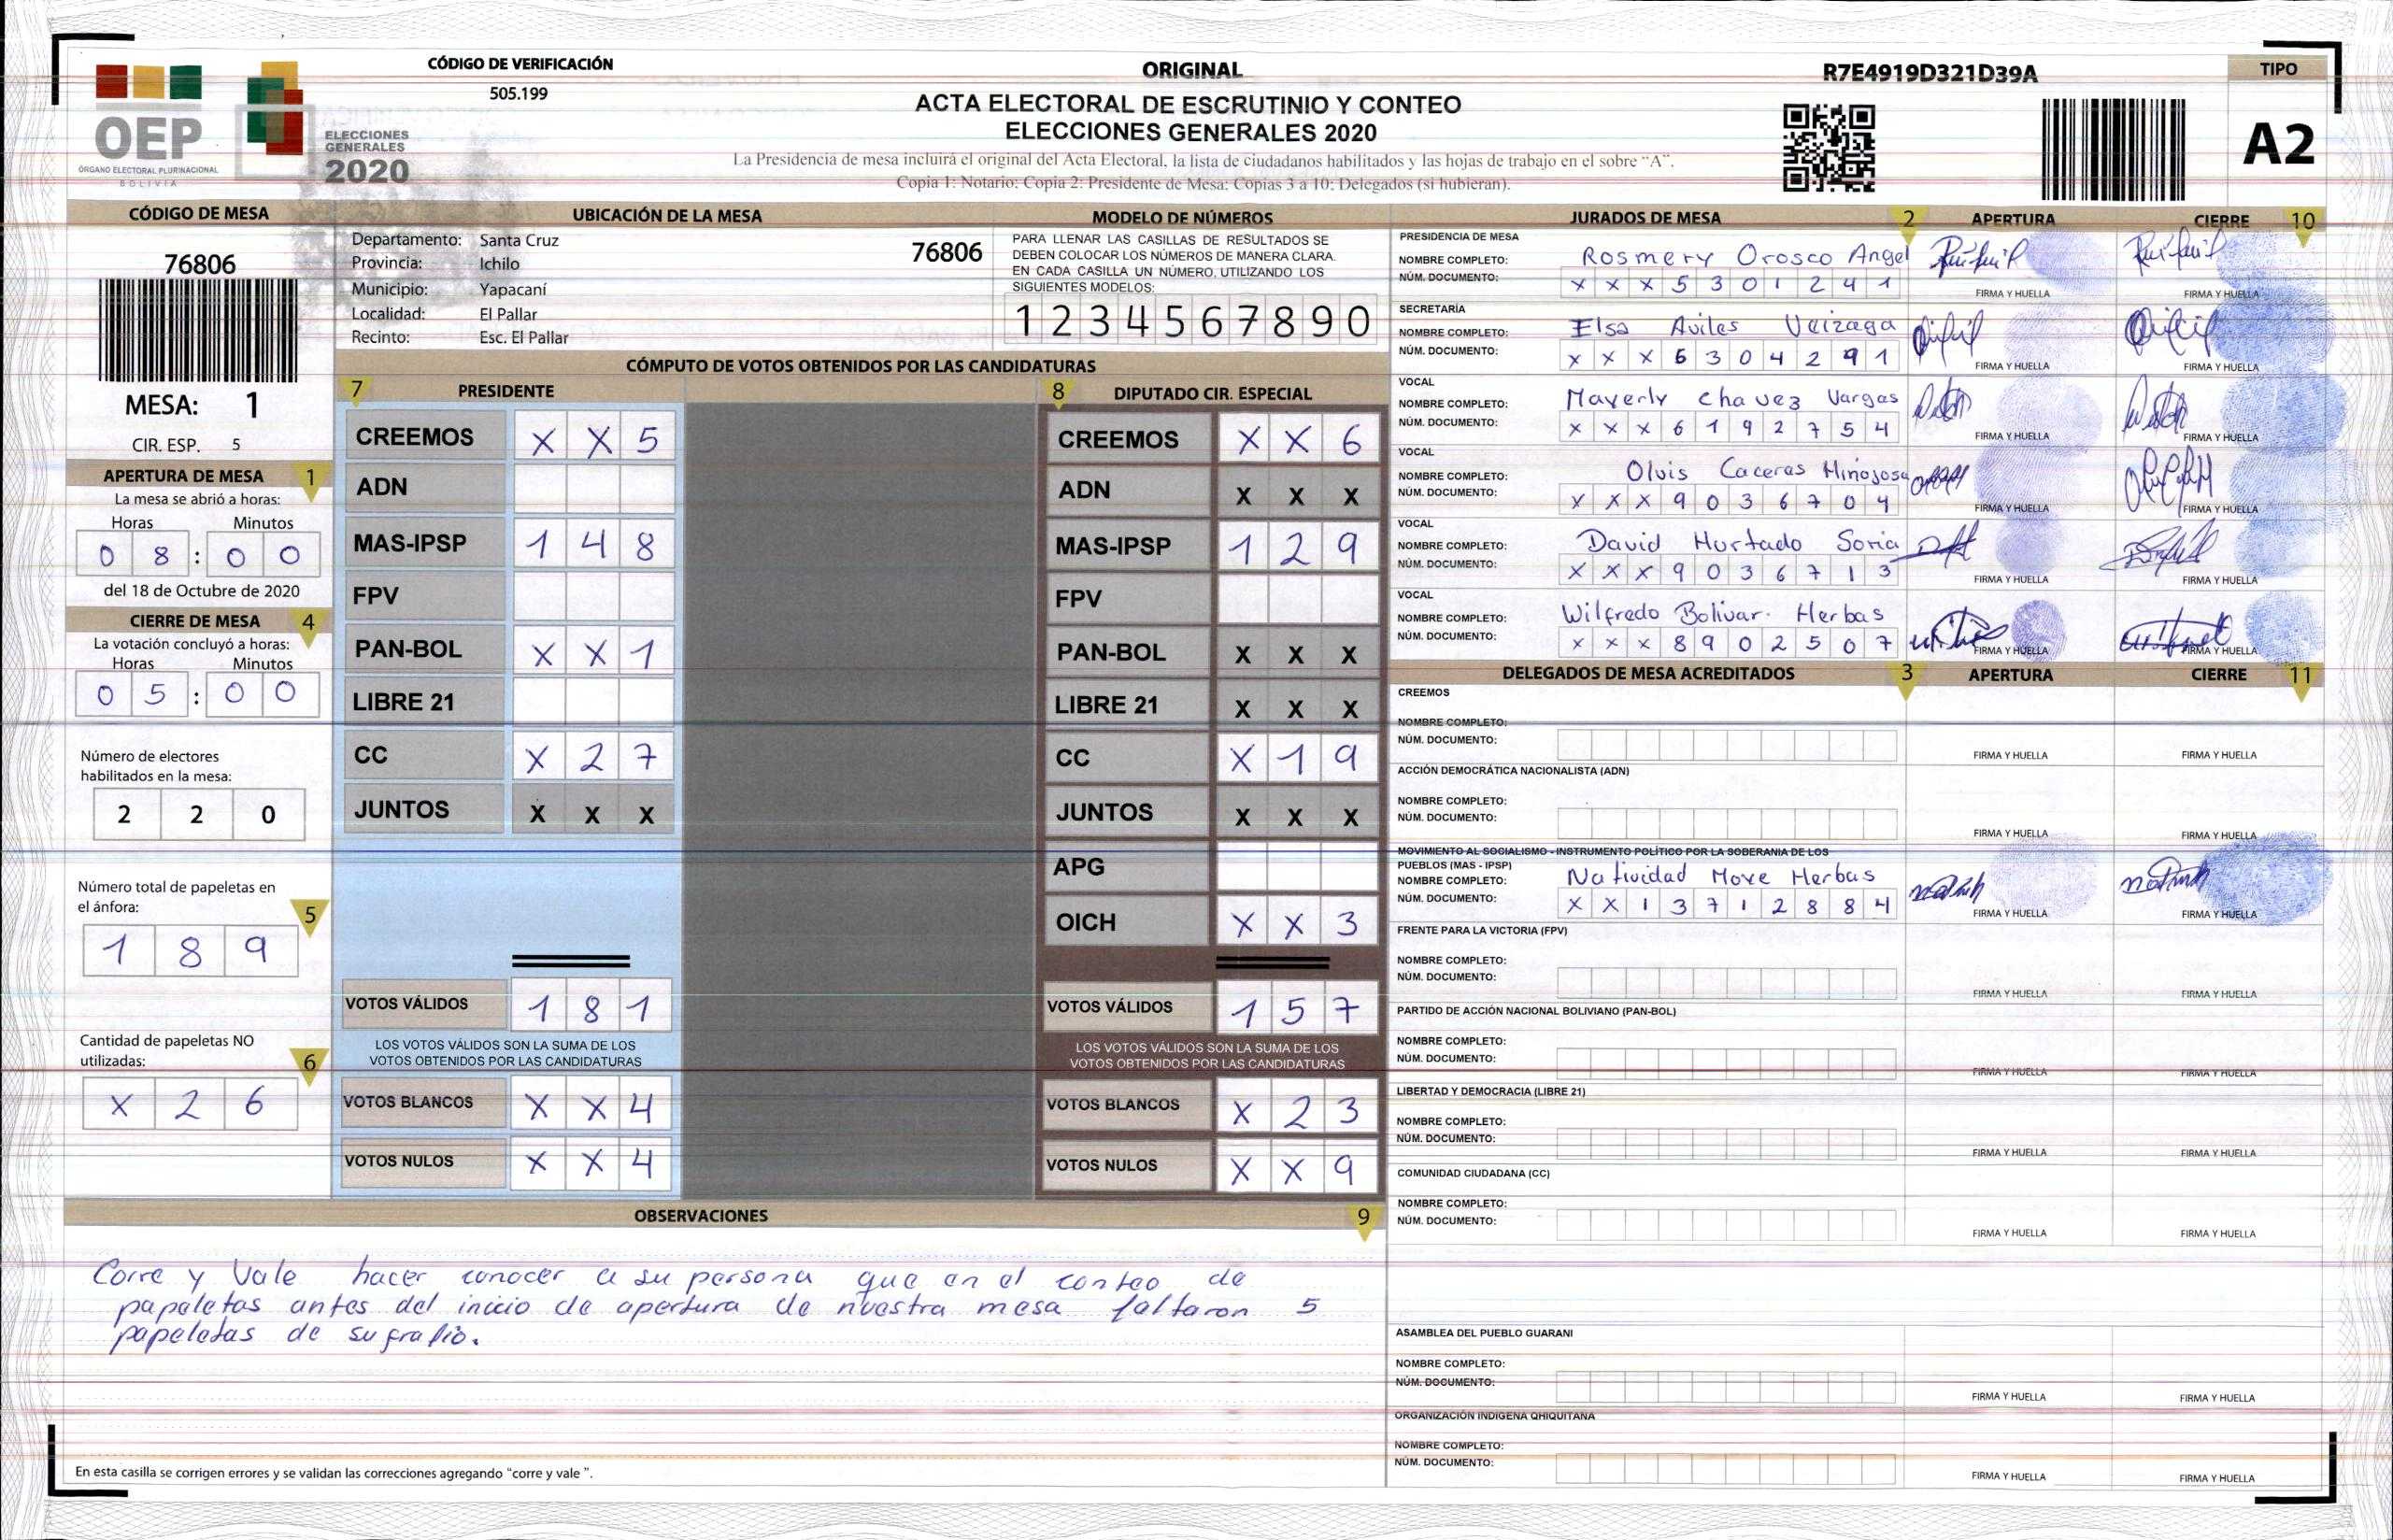 CÓDIGO DE VERIFICACIÓN
505.199
OEP
ÓRGANO ELECTORAL PLURINACIONAL
BOLIVIA
ELECCIONES
GENERALES
2020
ORIGINAL
ACTA ELECTORAL DE ESCRUTINIO Y CONTEO
ELECCIONES GENERALES 2020
La Presidencia de mesa incluirá el original del Acta Electoral, la lista de ciudadanos habilitados y las hojas de trabajo en el sobre "A".
Copia 1: Notario; Copia 2: Presidente de Mesa; Copias 3 a 10; Delegados (si hubieran).
R7E4919D321D39A
TIPO
A2
CÓDIGO DE MESA
76806
MESA: 1
CIR. ESP. 5
APERTURA DE MESA 1
La mesa se abrió a horas:
Horas Minutos
0 8 : 0 0
del 18 de Octubre de 2020
CIERRE DE MESA 4
La votación concluyó a horas:
Horas Minutos
0 5 : 0 0
Número de electores
habilitados en la mesa:
2 2 0
Número total de papeletas en
el ánfora:
5
1 8 9
Cantidad de papeletas NO
utilizadas:
6
X 2 6
UBICACIÓN DE LA MESA
Departamento: Santa Cruz
76806
Provincia: Ichilo
Municipio: Yapacaní
Localidad: El Pallar
Recinto: Esc. El Pallar
MODELO DE NÚMEROS
PARA LLENAR LAS CASILLAS DE RESULTADOS SE
DEBEN COLOCAR LOS NÚMEROS DE MANERA CLARA.
EN CADA CASILLA UN NÚMERO, UTILIZANDO LOS
SIGUIENTES MODELOS:
1 2 3 4 5 6 7 8 9 0
CÓMPUTO DE VOTOS OBTENIDOS POR LAS CANDIDATURAS
7 PRESIDENTE
CREEMOS X X 5
ADN
MAS-IPSP 1 4 8
FPV
PAN-BOL X X 1
LIBRE 21
CC X 2 7
JUNTOS X X X
VOTOS VÁLIDOS 1 8 1
LOS VOTOS VÁLIDOS SON LA SUMA DE LOS
VOTOS OBTENIDOS POR LAS CANDIDATURAS
VOTOS BLANCOS X X 4
VOTOS NULOS X X 4
8 DIPUTADO CIR. ESPECIAL
CREEMOS X X 6
ADN X X X
MAS-IPSP 1 2 9
FPV
PAN-BOL X X X
LIBRE 21 X X X
CC X 1 9
JUNTOS X X X
APG
OICH X X 3
VOTOS VÁLIDOS 1 5 7
LOS VOTOS VÁLIDOS SON LA SUMA DE LOS
VOTOS OBTENIDOS POR LAS CANDIDATURAS
VOTOS BLANCOS X 2 3
VOTOS NULOS X X 9
OBSERVACIONES 9
Corre y Vale hacer conocer a su persona que en el conteo de
papeletas antes del inicio de apertura de nuestra mesa faltaron 5
papeletas de sufrafio.
En esta casilla se corrigen errores y se validan las correcciones agregando "corre y vale ".
JURADOS DE MESA 2 APERTURA CIERRE 10
PRESIDENCIA DE MESA
NOMBRE COMPLETO: Rosmery Orosco Angel
NÚM. DOCUMENTO: X X X 5 3 0 1 2 4 1
FIRMA Y HUELLA FIRMA Y HUELLA
SECRETARÍA
NOMBRE COMPLETO: Elsa Aviles Veizaga
NÚM. DOCUMENTO: X X X 6 3 0 4 2 9 1
FIRMA Y HUELLA FIRMA Y HUELLA
VOCAL
NOMBRE COMPLETO: Mayerly Chavez Vargas
NÚM. DOCUMENTO: X X X 6 1 9 2 7 5 4
FIRMA Y HUELLA FIRMA Y HUELLA
VOCAL
NOMBRE COMPLETO: Olvis Caceras Hinojosa
NÚM. DOCUMENTO: X X X 9 0 3 6 7 0 4
FIRMA Y HUELLA FIRMA Y HUELLA
VOCAL
NOMBRE COMPLETO: David Hurtado Soria
NÚM. DOCUMENTO: X X X 9 0 3 6 7 1 3
FIRMA Y HUELLA FIRMA Y HUELLA
VOCAL
NOMBRE COMPLETO: Wilfredo Bolivar Herbas
NÚM. DOCUMENTO: X X X 8 9 0 2 5 0 7
FIRMA Y HUELLA FIRMA Y HUELLA
DELEGADOS DE MESA ACREDITADOS 3 APERTURA CIERRE 11
CREEMOS
NOMBRE COMPLETO:
NÚM. DOCUMENTO:
FIRMA Y HUELLA FIRMA Y HUELLA
ACCIÓN DEMOCRÁTICA NACIONALISTA (ADN)
NOMBRE COMPLETO:
NÚM. DOCUMENTO:
FIRMA Y HUELLA FIRMA Y HUELLA
MOVIMIENTO AL SOCIALISMO - INSTRUMENTO POLÍTICO POR LA SOBERANIA DE LOS
PUEBLOS (MAS - IPSP)
NOMBRE COMPLETO: Natividad Move Herbas
NÚM. DOCUMENTO: X X 1 3 7 1 2 8 8 4
FIRMA Y HUELLA FIRMA Y HUELLA
FRENTE PARA LA VICTORIA (FPV)
NOMBRE COMPLETO:
NÚM. DOCUMENTO:
FIRMA Y HUELLA FIRMA Y HUELLA
PARTIDO DE ACCIÓN NACIONAL BOLIVIANO (PAN-BOL)
NOMBRE COMPLETO:
NÚM. DOCUMENTO:
FIRMA Y HUELLA FIRMA Y HUELLA
LIBERTAD Y DEMOCRACIA (LIBRE 21)
NOMBRE COMPLETO:
NÚM. DOCUMENTO:
FIRMA Y HUELLA FIRMA Y HUELLA
COMUNIDAD CIUDADANA (CC)
NOMBRE COMPLETO:
NÚM. DOCUMENTO:
FIRMA Y HUELLA FIRMA Y HUELLA
ASAMBLEA DEL PUEBLO GUARANI
NOMBRE COMPLETO:
NÚM. DOCUMENTO:
FIRMA Y HUELLA FIRMA Y HUELLA
ORGANIZACIÓN INDIGENA QHIQUITANA
NOMBRE COMPLETO:
NÚM. DOCUMENTO:
FIRMA Y HUELLA FIRMA Y HUELLA